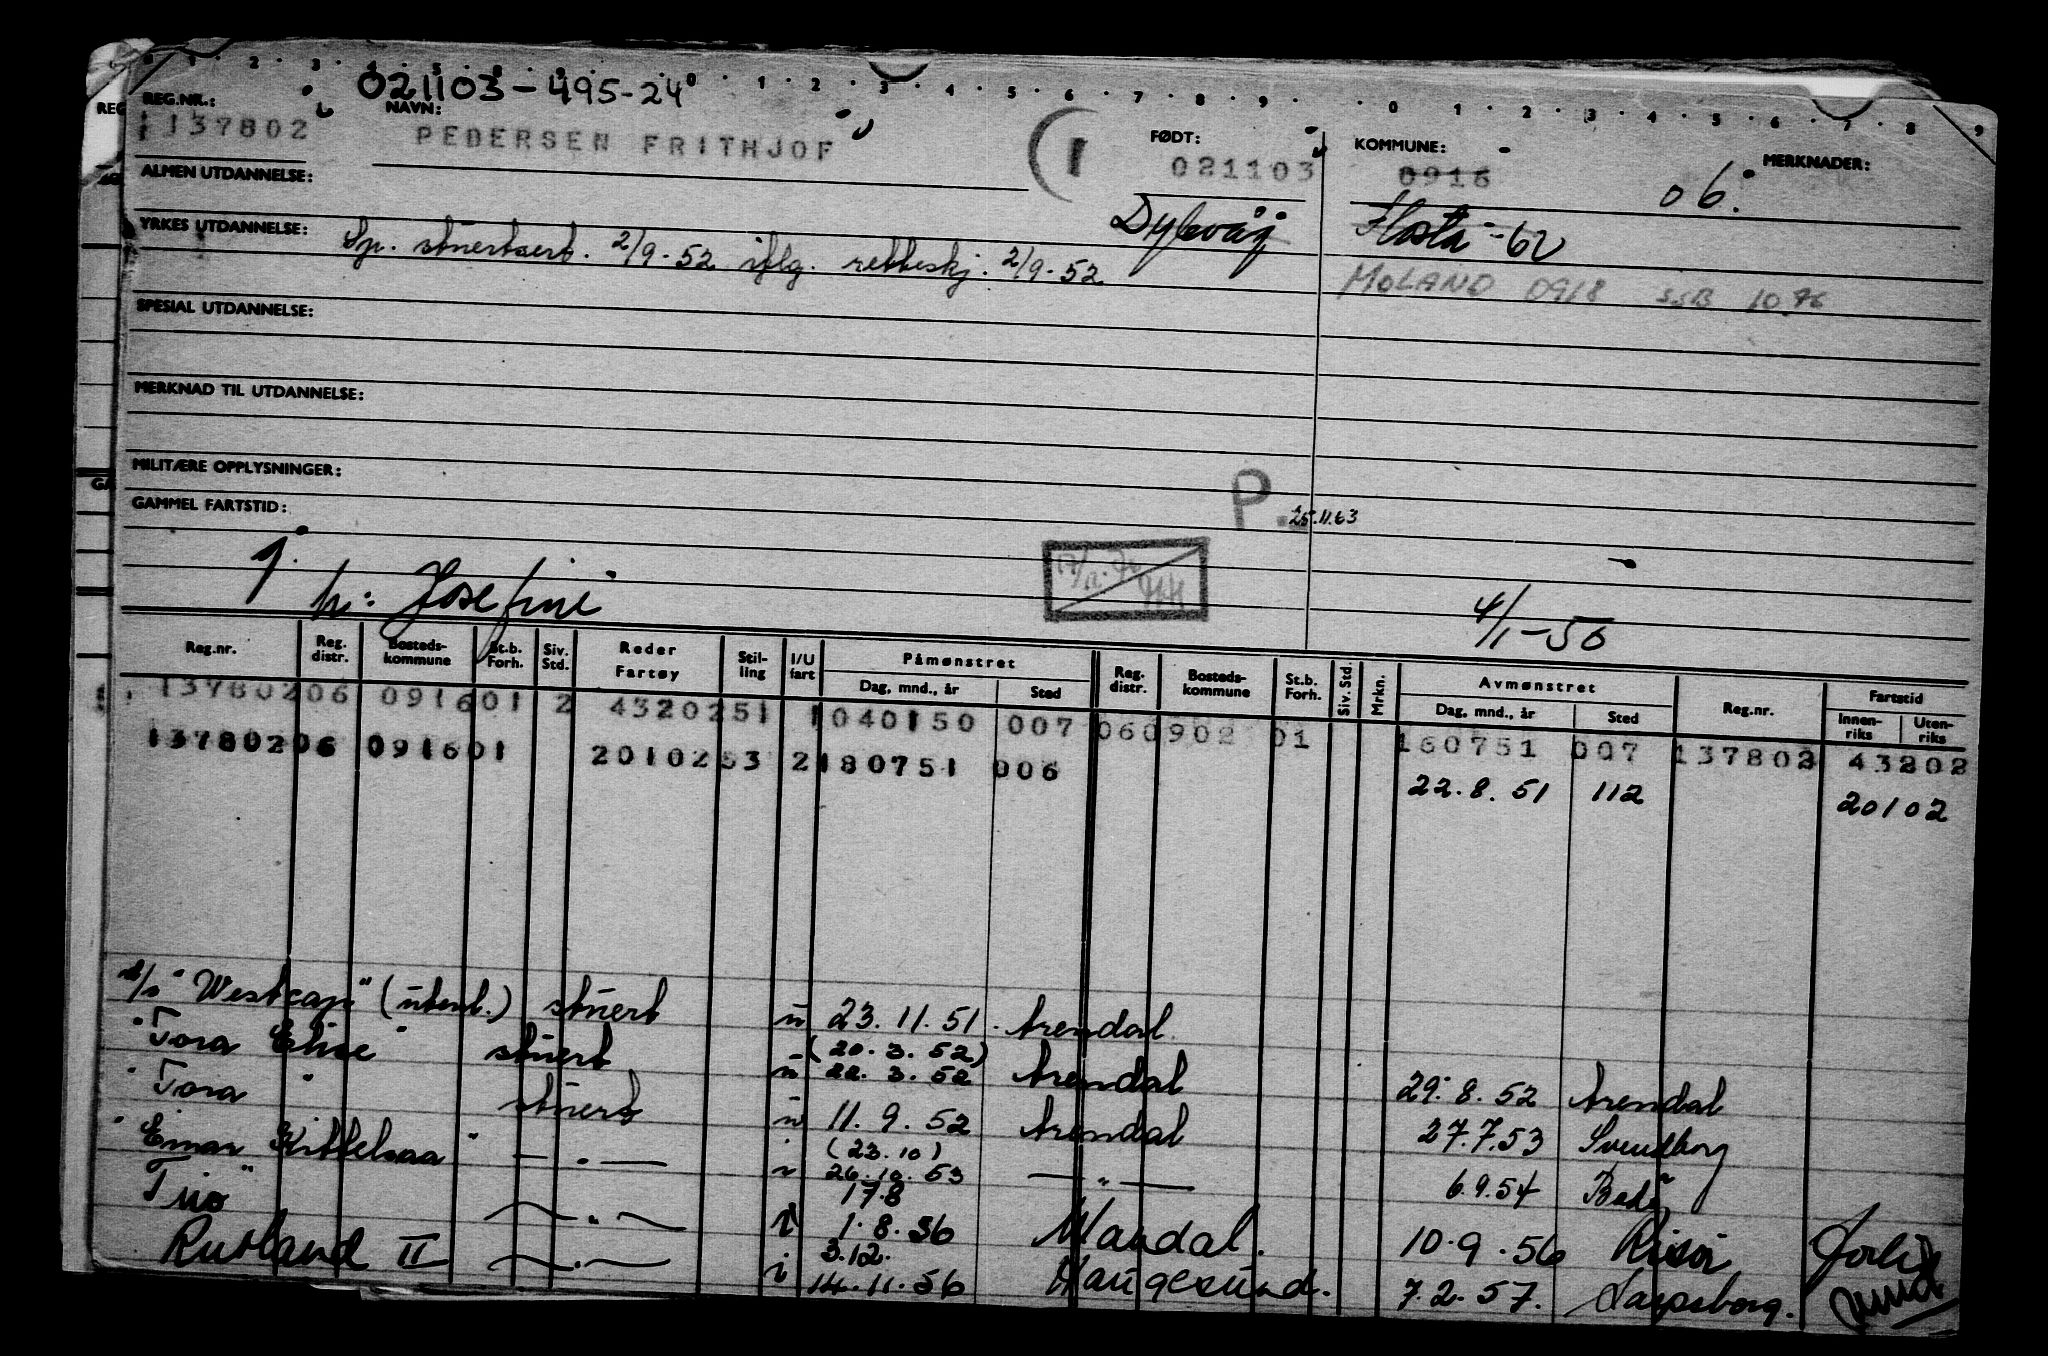 021103-495-24
REG.NR.: NAVN: FØDT: KOMMUNE: MERKNADER:
137802 PEDERSEN FRITHJOF 1 021103 0916 06.
ALMEN UTDANNELSE:
Dybvåg Flosta -62
YRKES UTDANNELSE: Sp. stuertsert. 2/9-52 iflg. rettleskj. 2/9-52
MOLAND 0918 SSB 10.76
SPESIAL UTDANNELSE:
MERKNAD TIL UTDANNELSE:
MILITÆRE OPPLYSNINGER:
P. 25.11.63
GAMMEL FARTSTID:
g. h: Josefine 4/1-56
Reg.nr. Reg. distr. Bosteds-kommune St.b. Forh. Siv. Std. Reder Fartøy Stil-ling I/U fart Påmønstret Dag, mnd., år Sted Reg. distr. Bosteds-kommune St.b. Forh. Siv. Std. Mrkn. Avmønstret Dag, mnd., år Sted Reg.nr. Fartstid Innen-riks Uten-riks
13780206 091601 2 4320251 1040150 007 060902 01 160751 007 137802 43202
13780206 091601 2010253 2180751 006 22.8.51 112 20102
"Westcape" (utenl.) stuert u 23.11.51. Arendal
(20.3.52)
"Tora Elise" stuert u 22.3.52 Arendal 29.8.52 Arendal
"Tora" stuert u 11.9.52 Arendal 27.7.53 Svendborg
(23.10)
"Einar Kittelsaa" — " — 26.10.53 — " — 6.9.54 Bodø
17.8
Trio — " — i 1.8.56 Mandal. 10.9.56 Risør
3.12.
Rutland II — " — i 14.11.56 Haugesund. 7.2.57. Sarpsborg.